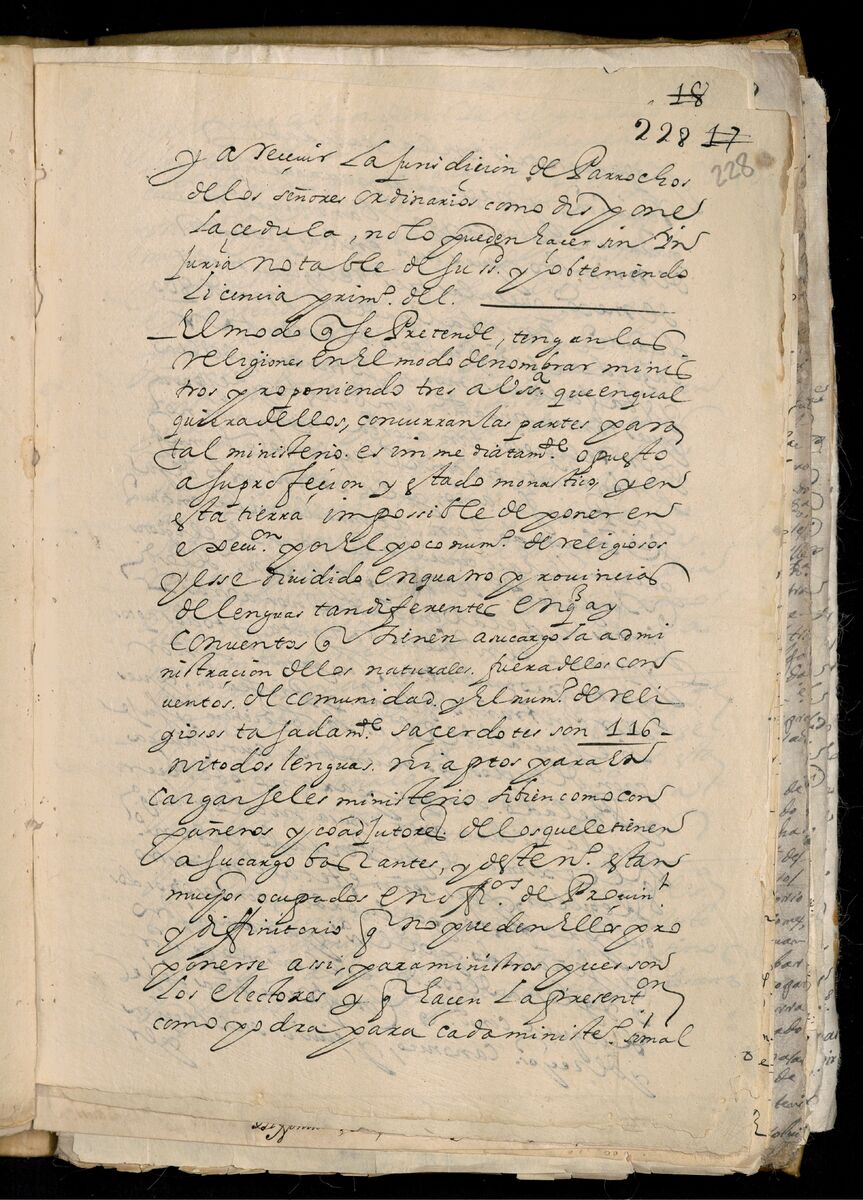 18
228 17
228
y a recevir la jurisdicion de Parrochos
de los señores ordinarios como dispone
la cedula, no lo pueden hacer sin in
juria notable de su y obteniendo
licencia prim.º del.
El modo q̃ se Pretende, tengan las
religiones en El modo de nombrar minis
tros y proponiendo tres a V.ssª. que en qual
quiera dellos, concurran las partes para
tal ministerio. es inmediatam.de opuesto
a su profecion y estado monastico, y en
esta tierra impossible de poner en
execu.on por El poco num.º de religiosos
y esse dividido en quatro provincias
de lenguas tan diferentes en q̃ ay
conventos q̃ tienen a su cargo la admi
nistración de los naturales. fuera de los con
ventos. de comunidad. y El num.º de reli
giosos tasadam.de sacerdotes son 116-
ni todos lenguas. ni aptos para en
cargarseles ministerio si bien como con
pañeros y coadjutores. de los que le tienen
a su cargo bastantes, y deste n.º estan
muchos ocupados en offi.os de Provin.l
y diffinitorio q̃ no pueden Ellos pro
ponerse assi, para ministros pues son
los electores y q̃ hacen la present.on
como podra para cada ministe.º